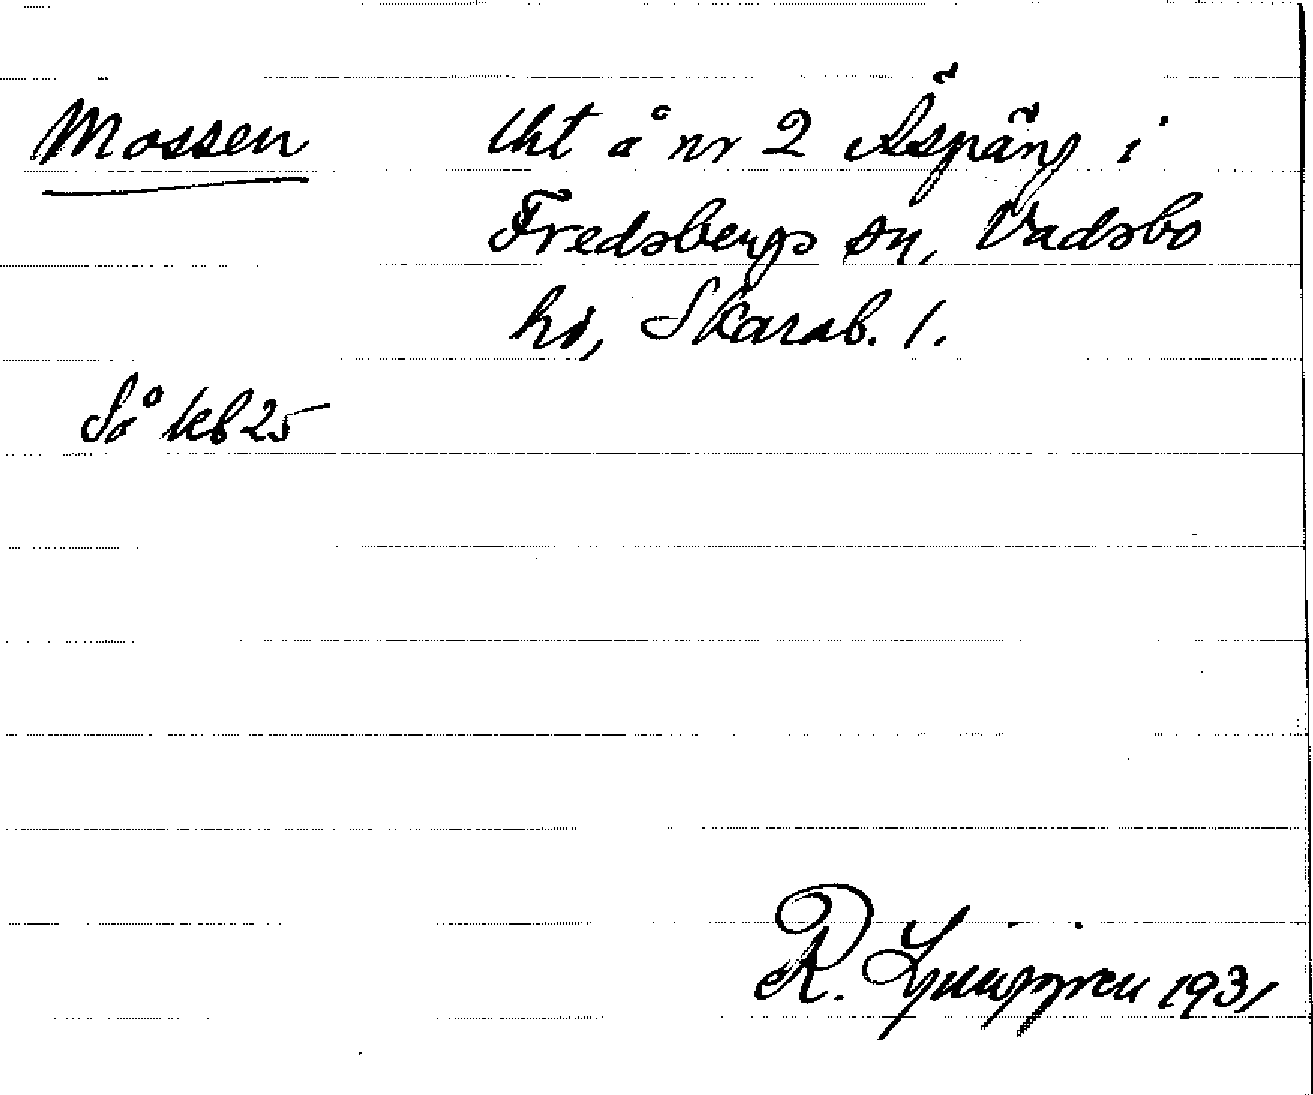 Mossen lht å nr 2 Äspäng i
Fredsbergs sn, Vadsbo
hd, Skarab. l.
Så kb 25
R. Ljunggren 1931